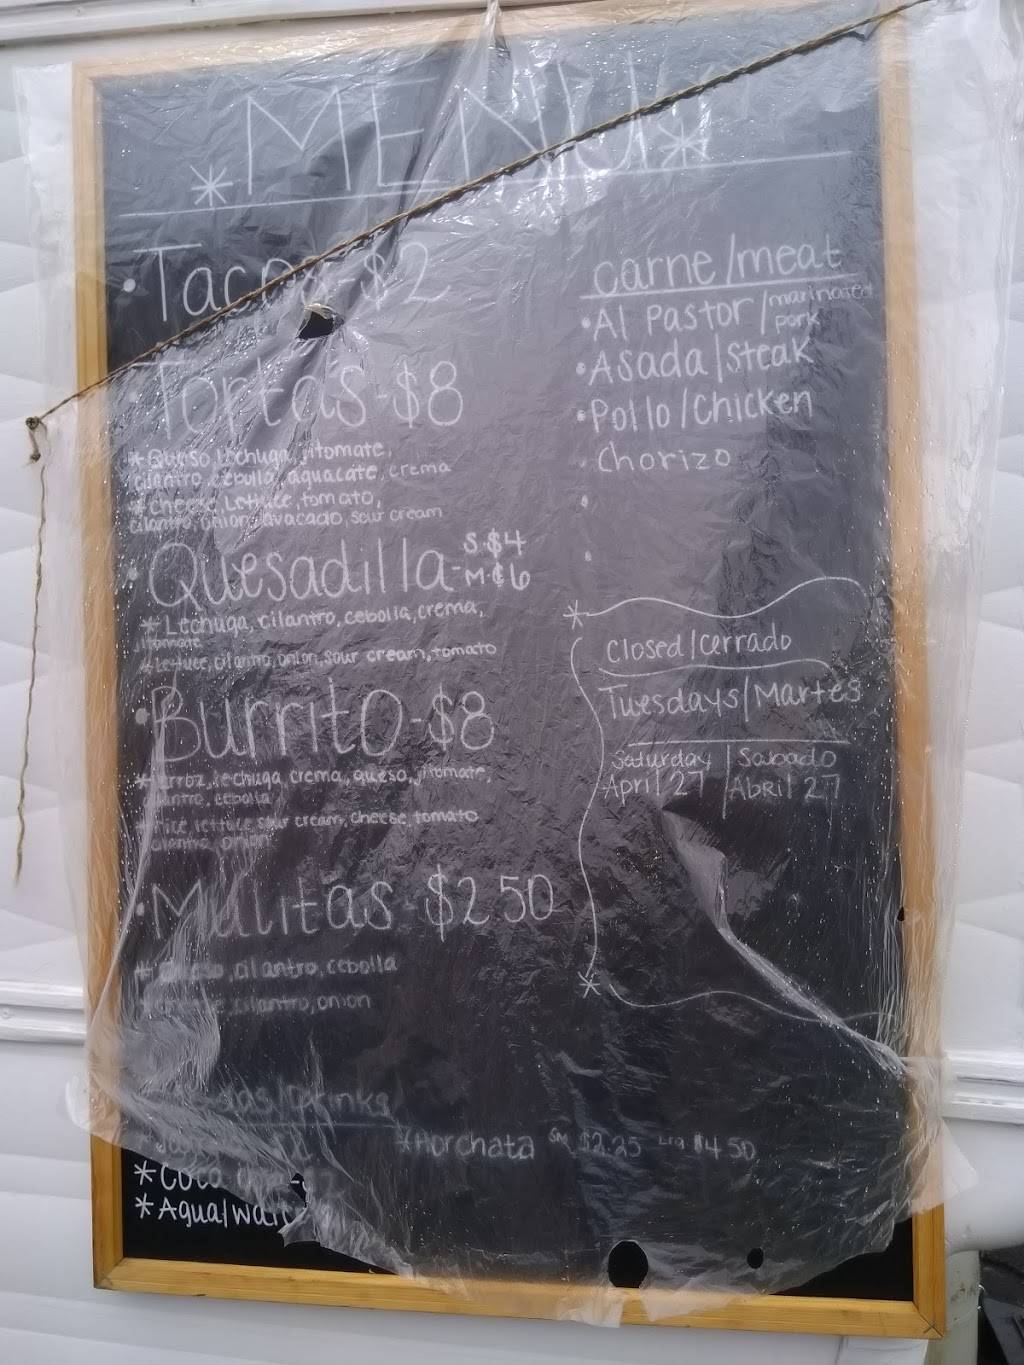 *MENU*
• Tacos $2
• Tortas-$8
* Queso, Lechuga, jitomate,
cilantro, cebolla, aguacate, crema
* cheese, Lettuce, tomato,
cilantro, onion, avacado, sour cream
• Quesadilla-S.$4
M.$6
* Lechuga, cilantro, cebolla, crema,
jitomate
* Lettuce, cilantro, onion, sour cream, tomato
• Burrito-$8
* arroz, lechuga, crema, queso, jitomate,
cilantro, cebolla
* rice, lettuce, sour cream, cheese, tomato
cilantro, onion
• Mulitas-$2.50
* queso, cilantro, cebolla
* cilantro, onion
/Drinks
* Coca
* Agua/water
*Horchata SM $2.25 Lrg $4.50
carne/meat
• Al Pastor/marinated
pork
• Asada/steak
• Pollo/Chicken
chorizo
Closed/cerrado
Tuesdays/Martes
Saturday | Sabado
April 27 | Abril 27